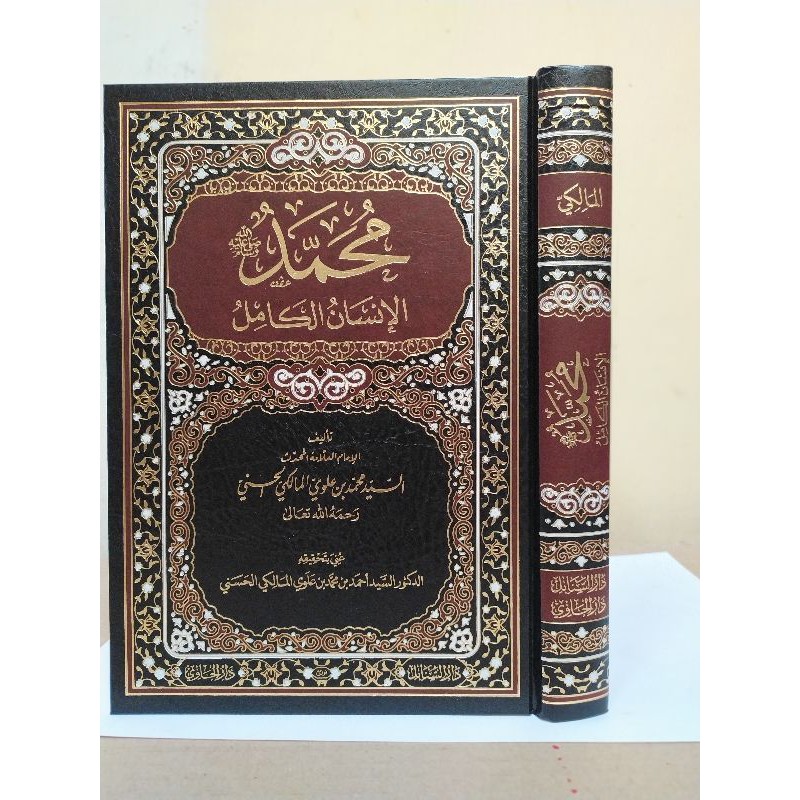 محمد ﷺ
الإنسان الكامل
تأليف
الإمام العلامة المحدث
السيد محمد بن علوي المالكي الحسني
رحمه الله تعالى
عني بتحقيقه
الدكتور السيد أحمد بن محمد بن علوي المالكي الحسني
دار السنابل
دار الحاوي
المالكي
محمد ﷺ
الإنسان الكامل
دار السنابل
دار الحاوي